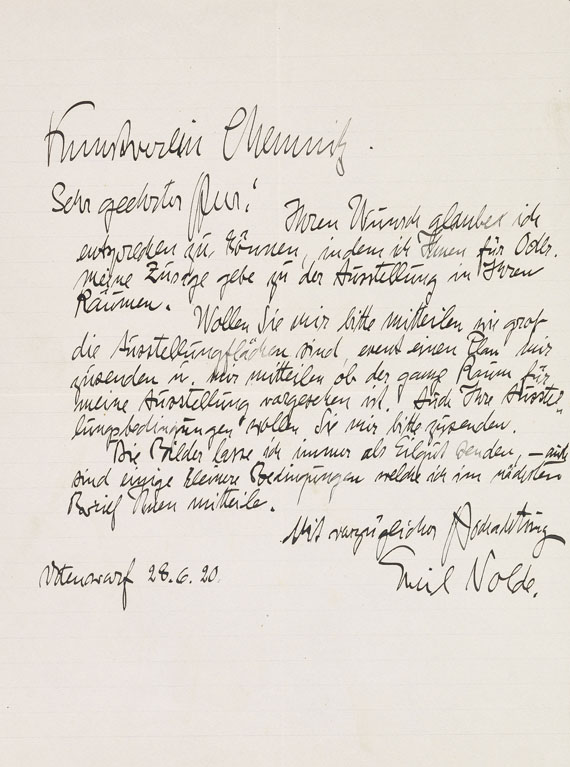 Kunstverein Chemnitz.
Sehr geehrter Herr!
Ihren Wunsch glaube ich
entsprechen zu können, indem ich Ihnen für Octbr.
meine Zusage gebe zu der Ausstellung in Ihren
Räumen.
Wollen Sie mir bitte mitteilen wie groß
die Ausstellungsflächen sind, event einen Plan mir
zusenden u. mir mitteilen ob der ganze Raum für
meine Ausstellung vorgesehen ist. Auch Ihre Ausstel-
lungsbedingungen wollen Sie mir bitte zusenden.
Die Bilder lasse ich immer als Eilgut senden, – auch
sind einige kleinere Bedingungen welche ich im nächsten
Brief Ihnen mitteile.
Mit vorzüglicher Hochachtung
Utenwarf 28.6.20.
Emil Nolde.